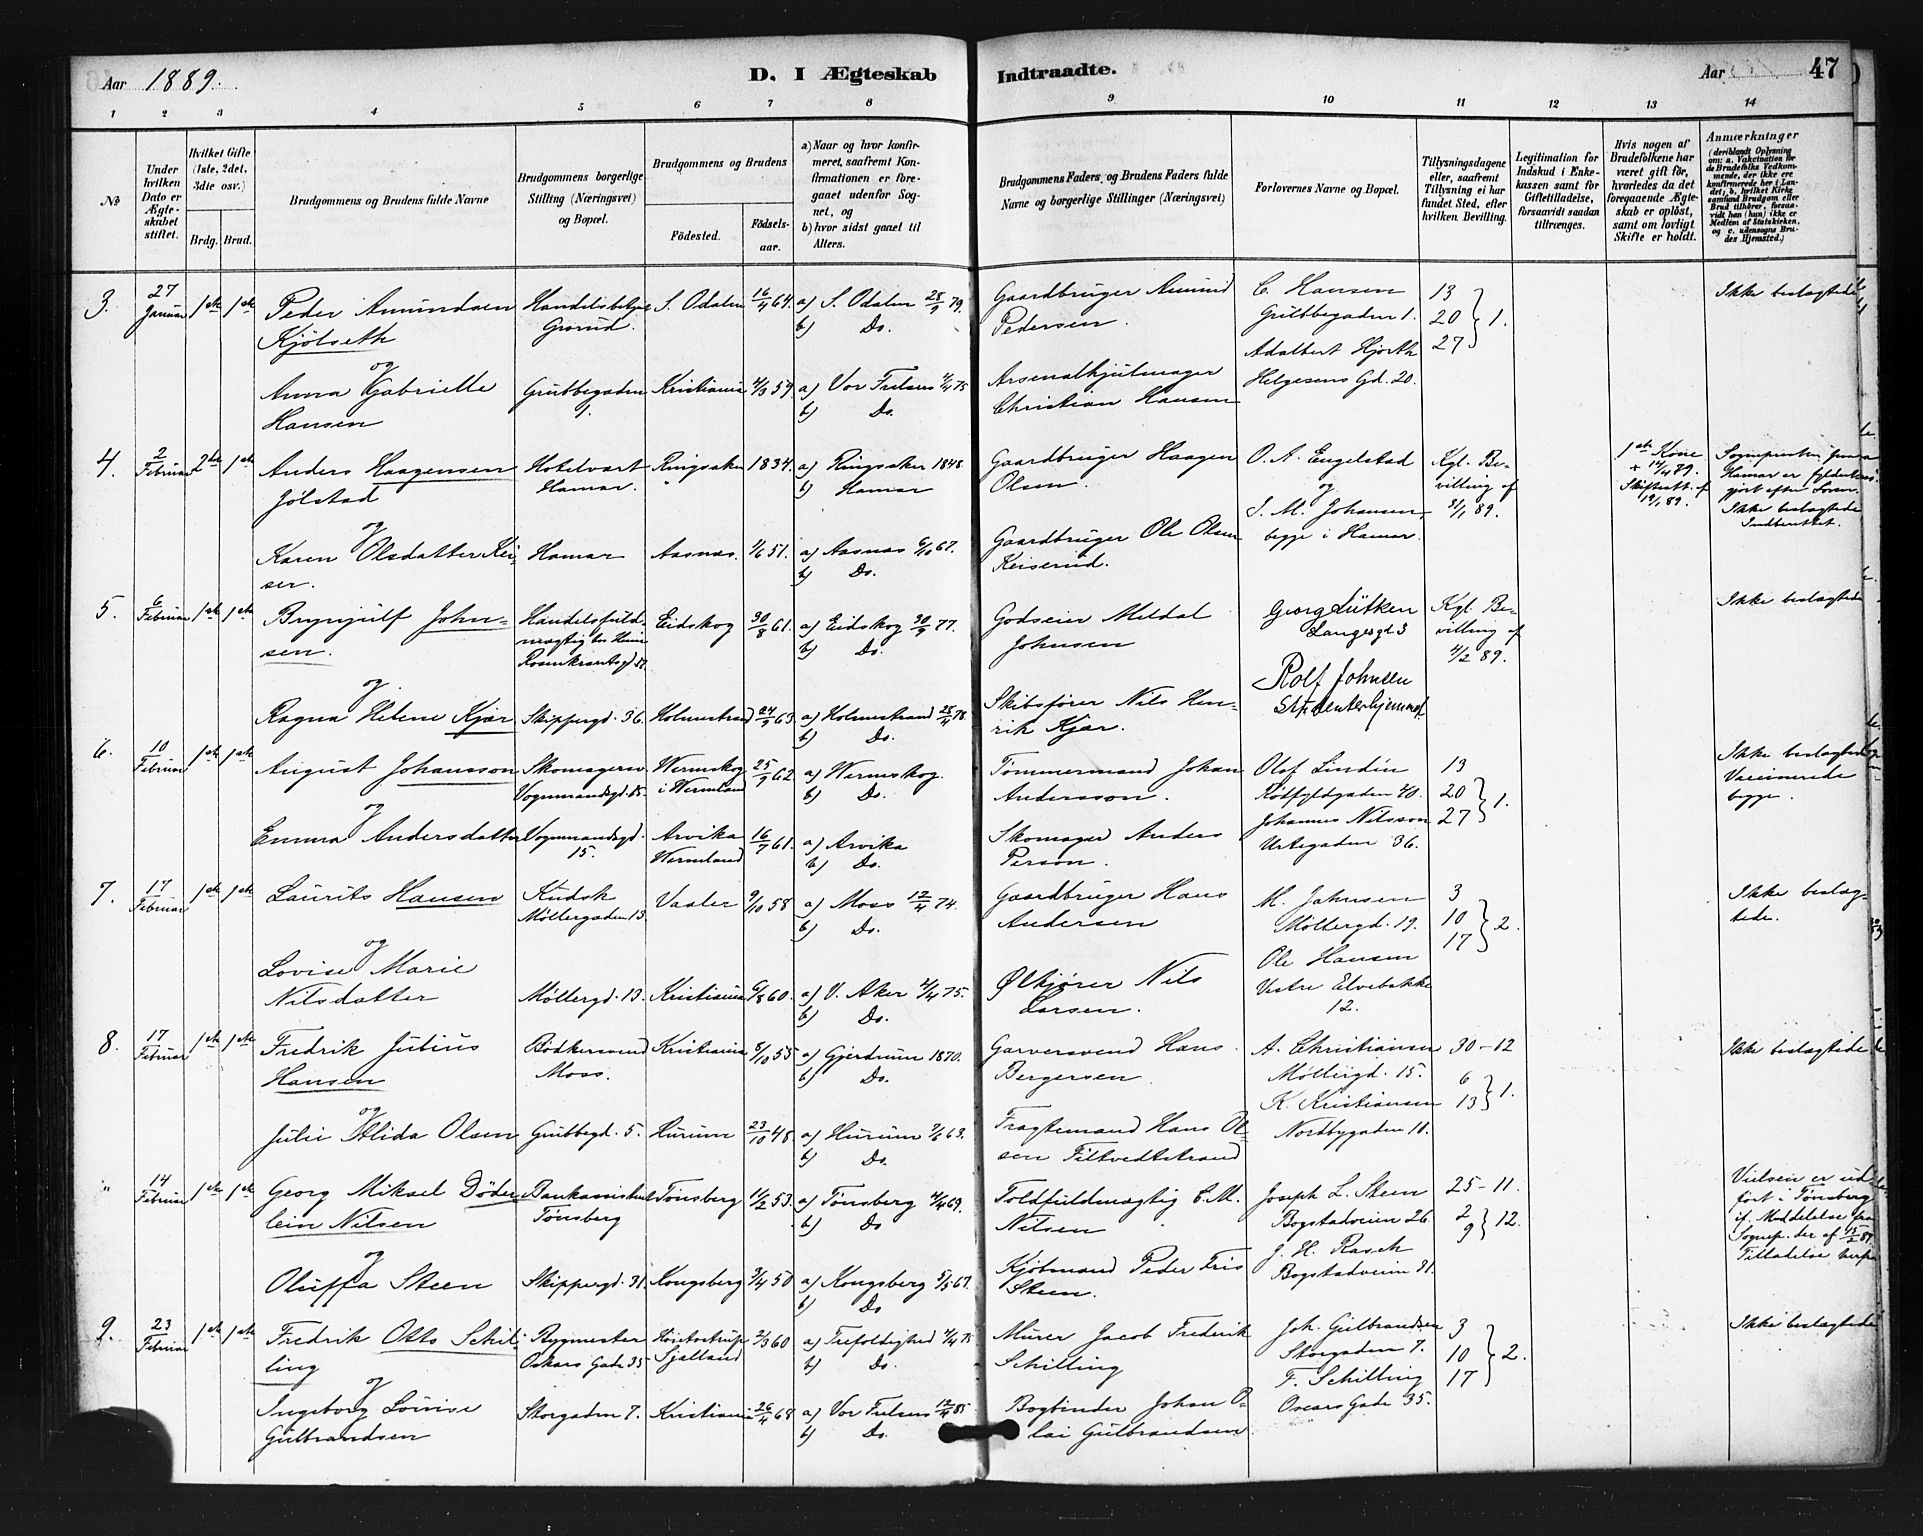 Aar 1889.
D. I Ægteskab Indtraadte.
Aar 47
1 2 3 4 5 6 7 8 9 10 11 12 13 14
No
Under hvilken Dato er Ægteskabet stiftet.
Hvilket Gifte (1ste, 2det, 3die osv.)
Brdg. Brud.
Brudgommens og Brudens fulde Navne
Brudgommens borgerlige Stilling (Næringsvei) og Bopæl.
Brudgommens og Brudens
Fødested. Fødsels-aar.
a) Naar og hvor konfirmeret, saafremt Konfirmationen er foregaaet udenfor Sognet, og
b) hvor sidst gaaet til Alters.
Brudgommens Faders og Brudens Faders fulde Navne og borgerlige Stillinger (Næringsvei)
Forlovernes Navne og Bopæl.
Tillysningsdagene eller, saafremt Tillysning ei har fundet Sted, efter hvilken Bevilling.
Legitimation for Indskud i Enkekassen samt for Giftetilladelse, forsaavidt saadan tiltrænges.
Hvis nogen af Brudefolkene har været gift før, hvorledes da det foregaaende Ægteskab er opløst, samt om lovligt Skifte er holdt.
Anmærkninger
(deriblandt Oplysning om: a. Vakcination for de Brudefolks Vedkommende, der ikke ere konfirmerede her i Landet; b. hvilket Kirkesamfund Brudgom eller Brud tilhører, forsaavidt han (hun) ikke er Medlem af Statskirken, og c. udensogns Brudes Hjemsted.)
3. 27 Januar 1ste 1ste Peder Amundsen Kjølseth Grorud. S. Odalen 16/4 64. a) S. Odalen 28/9 79. b) Do. Gaardbruger Amund Pedersen. C. Hansen Grubbegaden 1. Adalbert Hjorth Helgesens Gd. 20. 13 20 27 } 1. Ikke beslægtede
og
Anna Gabrielle Hansen Grubbegaden 1. Kristiania 4/3 59. a) Vor Frelsers 4/4 75 b) Do. Arsenalhjulmager Christian Hansen
4. 2 Februar 2det 1ste Anders Haagensen Jølstad Hotelvært Hamar. Ringsaker 1834. a) Ringsaker 1848. b) Hamar Gaardbruger Haagen Olsen. O. A. Engelstad og S. M. Johansen, begge i Hamar. Kgl. Bevilling af 31/1 89. 1ste Kone Skifteatt. af 19/1 89. Ikke beslægtede
og
Karen Olsdatter Keiser. Hamar Aasnæs. 1/6 51. a) Aasnæs 6/10 67. b) Do. Gaardbruger Ole Olsen Keiserud.
5. 6 Februar 1ste 1ste Brynjulf Johnsen. Rosenkrantsgd. Eidskog 30/8 61. a) Eidskog 30/9 77. b) Do. Godseier Meldal Johnsen Georg Lütken Langesgt 3 Rolf Johnsen Kgl. Bevilling af 4/2 89. Ikke beslægtede
og
Ragna Helene Kjær Skippergd. 36. Holmestrand 24/9 63. a) Holmestrand 28/4 78. b) Do. Skibsfører Nils Henrik Kjær.
6. 10 Februar 1ste 1ste August Johansson Skomagersv. Vognmandsgd. 15. Wermskog i Wermland 25/9 62 a) Wermskog. b) Do. Tømmermand Johan Andersson. Olof Lindén Rødfyldgaden 40. Johannes Nilsson Urtegaden 36. 13 20 27 } 1. Ikke beslægtede Vaccinerede begge.
og
Emma Andersdatter Vognmandsgd. 15. Arvika Wermland 16/7 61. a) Arvika b) Do. Skomager Anders Person.
7. 17 Februar 1ste 1ste Laurits Hansen Kudsk Møllergaden 13. Vaaler 9/10 58 a) Moss 12/4 74. b) Do. Gaardbruger Hans Andersen M. Johnsen Møllergd. 19. Ole Hansen Vestre Elvebakke 12. 3 10 17 } 2. Ikke beslægtede.
og
Lovise Marie Nilsdatter Møllergd. 13. Kristiania 6/8 60. a) V. Aker 4/4 75. b) Do. Ølkjører Nils Larsen.
8. 17 Februar 1ste 1ste Fredrik Julius Hansen Bødkersvend Moss. Kristiania 8/10 55 a) Gjerdrum 1870. b) Do. Garversvend Hans Bergersen A. Christiansen Møllergd. 15. K. Kristiansen Nordbygaden 18. 30-12 6 13 } 1. Ikke beslægtede
og
Julie Alida Olsen Grubbegd. 5. Hurum 23/10 48. a) Hurum 7/6 63. b) Do. Fragtemand Hans Olsen Filtvedtstrand
" 14 Februar 1ste 1ste Georg Mikael Døderlein Nilsen Bankassistent Tønsberg Tønsberg 11/2 53. a) Tønsberg 4/4 69. b) Do Toldfuldmægtig C. M. Nilsen Joseph L. Steen Bogstadveien 26. J. H. Rasch Bogstadveien 31. 25-11. 2 9 } 12. Vielsen er udført i Tønsberg if. Meddelelse fra Sognep. der af 15/2 89. Tilladelse
og
Oluffa Steen Skippergd. 31. Kongsberg 3/4 50 a) Kongsberg 5/5 67. b) Do Kjøbmand Peder Friis Steen.
9. 23 Februar 1ste 1ste Fredrik Otto Schilling Bygmester Oskars Gade 35 Sjælland 2/3 60 a) Trefoldighed 4/4 75 b) Do. Murer Jacob Frederik Schilling Joh. Gulbrandsen Storgaden 7. F. Schilling Oscars Gade 35. 3 10 17 } 2. Ikke beslægtede
og
Ingeborg Lovise Gulbrandsen Storgaden 7. Kristiania 26/4 68 a) Vor Frelsers 12/4 85 b) Do. Bogbinder Johan Olai Gulbrandsen